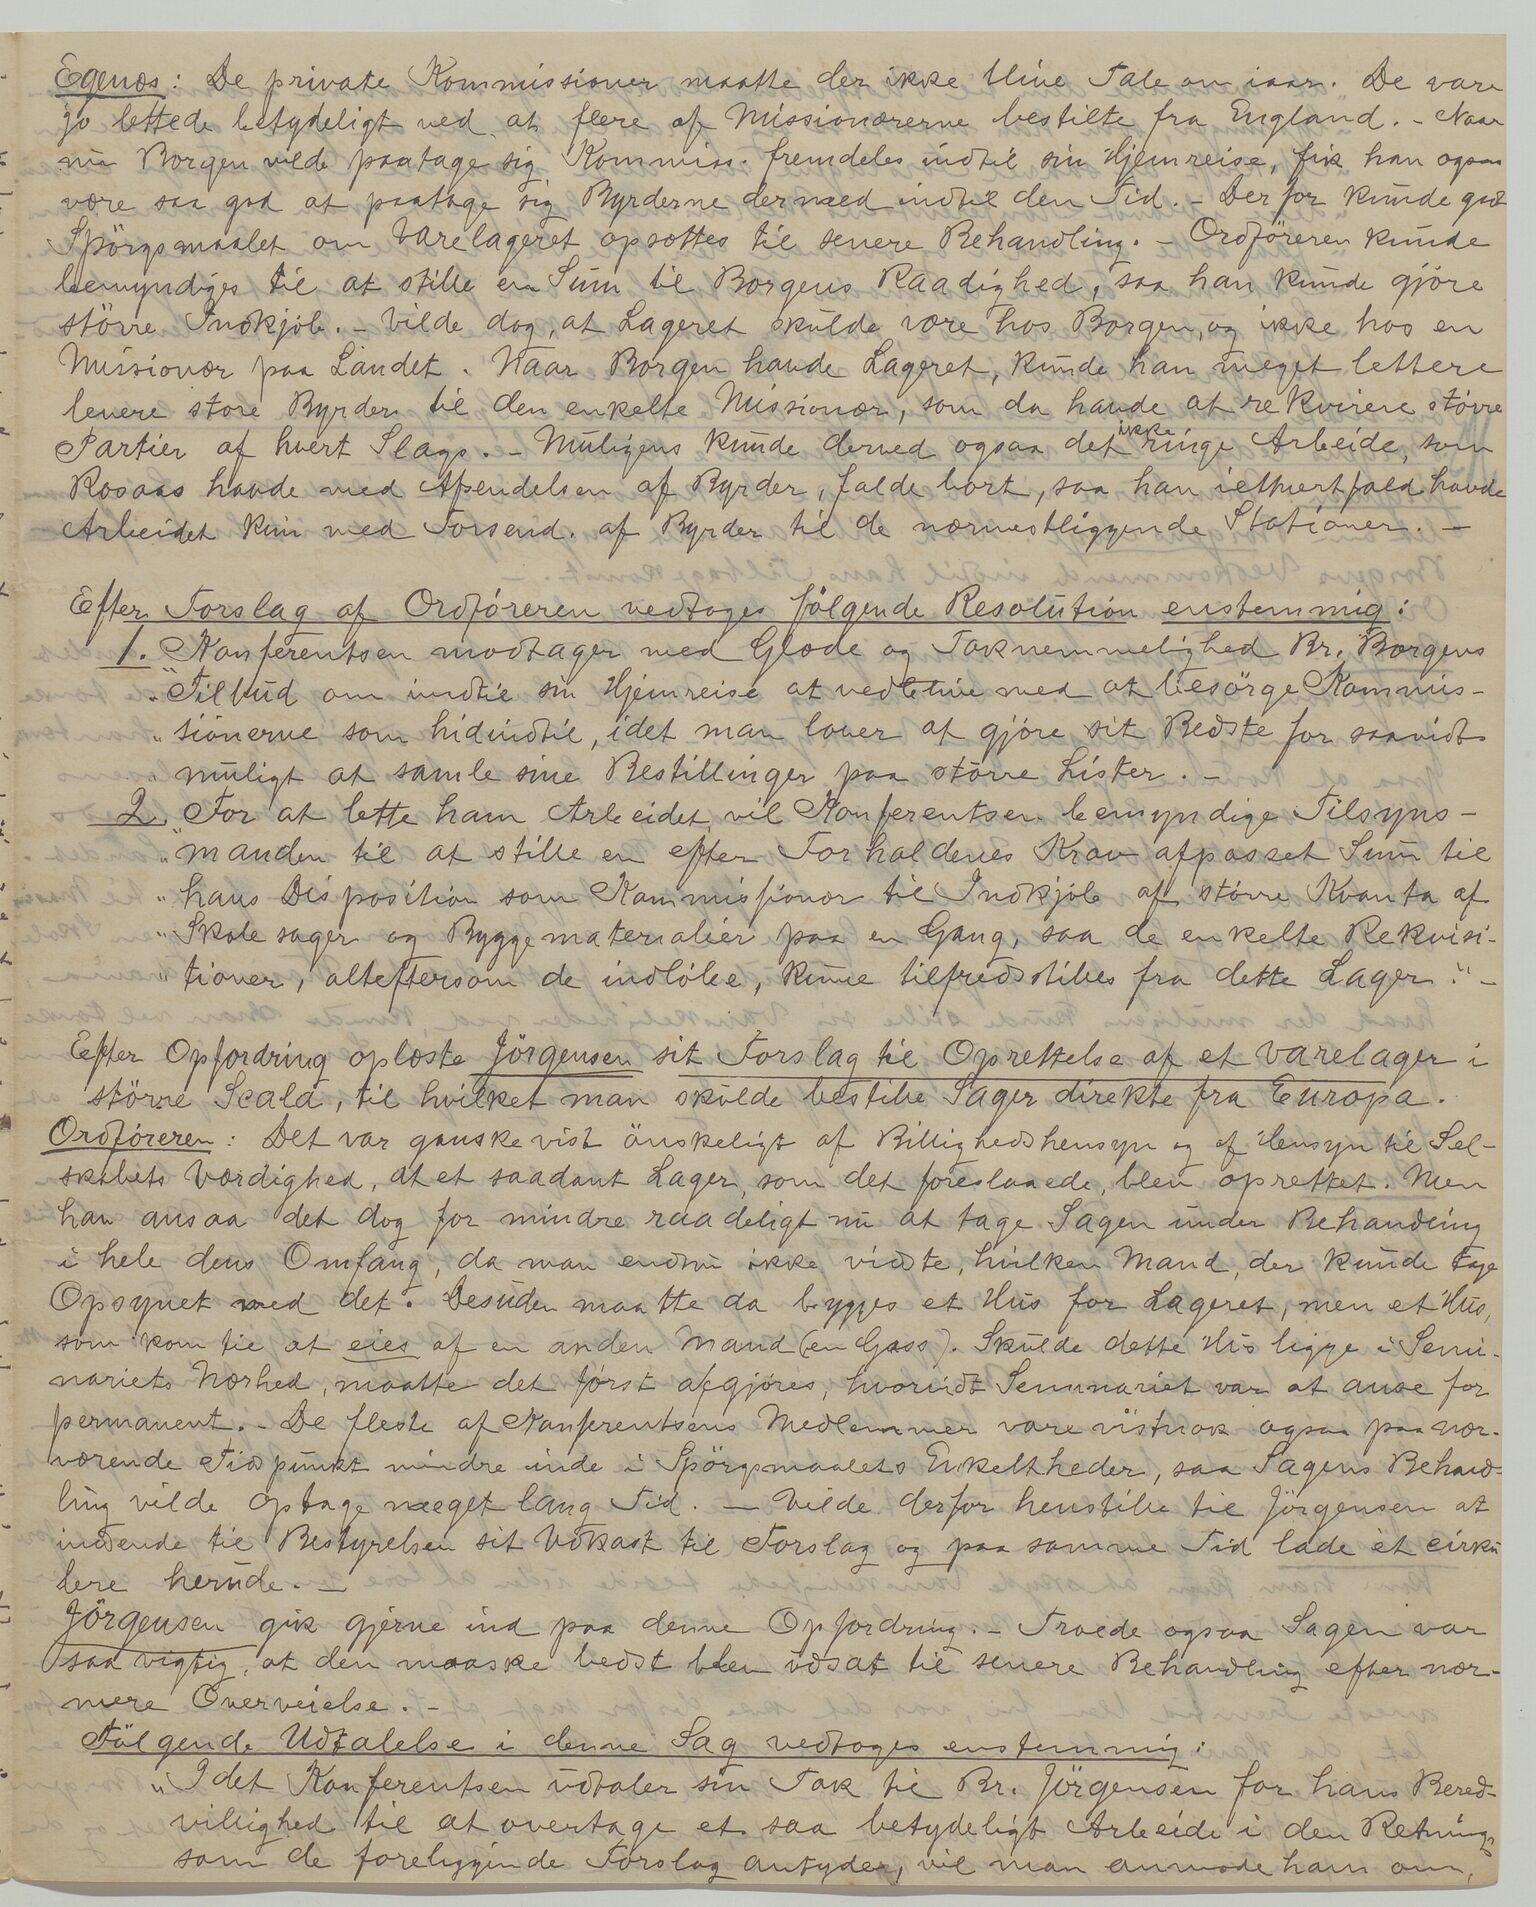 Egenæs: De private Kommissioner maatte der ikke blive Tale om iaar. De vare
jo lettede betydeligt ved at flere af Missionærerne bestilte fra England. - Naar
nu Borgen vilde paatage sig Kommiss. fremdeles indtil sin Hjemreise, fik han ogsaa
være saa god at paatage sig Byrderne dermed indtil den Tid. - Derfor kunde godt
Spörgsmaalet om Varelageret opsættes til senere Behandling. - Ordföreren kunde
bemyndiges til at stille en Sum til Borgens Raadighed, saa han kunde gjöre
större Indkjöb. - Vilde dog, at Lageret skulde være hos Borgen, og ikke hos en
Missionær paa Landet. Naar Borgen havde Lageret, kunde han meget lettere
levere store Byrder til den enkelte Missionær, som da havde at rekvirere större
Partier af hvert Slags. - Muligens kunde derved ogsaa det ikke ringe Arbeide, som
Rosaas havde med Afsendelsen af Byrder, falde bort, saa han ialhvertfald havde
Arbeidet kun med Forsend. af Byrder til de nærmestliggende Stationer. -
Efter Forslag af Ordföreren vedtoges fölgende Resolution enstemmig:
1. Konferentsen modtager med Glæde og Taknemmelighed Br. Borgens
" Tilbud om indtil sin Hjemreise at vedblive med at besörge Kommis-
" sionerne som hidindtil, idet man lover at gjöre sit Bedste for saavidt
" muligt at samle sine Bestillinger paa större Lister. -
2. For at lette ham Arbeidet vil Konferentsen bemyndige Tilsyns-
" manden til at stille en efter Forholdenes Krav afpasset Sum til
" hans Disposition som Kommissionær til Indkjöb af större Kvanta af
" Skolesager og Byggematerialier paa en Gang, saa de enkelte Rekvisi-
" tioner, alteftersom de indlöbe, kunne tilfredsstilles fra dette Lager." -
Efter Opfordring oplæste Jörgensen sit Forslag til Oprettelse af et Varelager i
större Scala, til hvilket man skulde bestille Sager direkte fra Europa.
Ordföreren: Det var ganske vist önskeligt af Billighedshensyn og af Hensyn til Sel-
skabets Værdighed, at et saadant Lager, som det foreslaaede, blev oprettet. Men
han ansaa det dog for mindre raadeligt nu at tage Sagen under Behandling
i hele dens Omfang, da man endnu ikke vidste, hvilken Mand, der kunde tage
Opsynet med det. Desuden maatte da bygges et Hus for Lageret, men et Hus,
som kom til at eies af en anden Mand (en Gass). Skulde dette Hus ligge i Semi-
nariets Nærhed, maatte det först afgjöres, hvorvidt Seminariet var at anse for
permanent. - De fleste af Konferentsens Medlemmer vare vistnok ogsaa paa nær-
værende Tidspunkt mindre inde i Spörgsmaalets Enkeltheder, saa Sagens Behand-
ling vilde optage meget lang Tid. - Vilde derfor henstille til Jörgensen at
indsende til Bestyrelsen sit Udkast til Forslag og paa samme Tid lade et cirku
lere herude. -
Jörgensen gik gjerne ind paa denne Opfordring. - Troede ogsaa Sagen var
saa vigtig, at den maaske bedst blev udsat til senere Behandling efter nær-
mere Overveielse. -
Fölgende Udtalelse i denne Sag vedtoges enstemmig:
" Idet Konferentsen udtaler sin Tak til Br. Jörgensen for hans Bered-
villighed til at overtage et saa betydeligt Arbeide i den Retning,
som de foreliggende Forslag antyder, vil man anmode ham om,